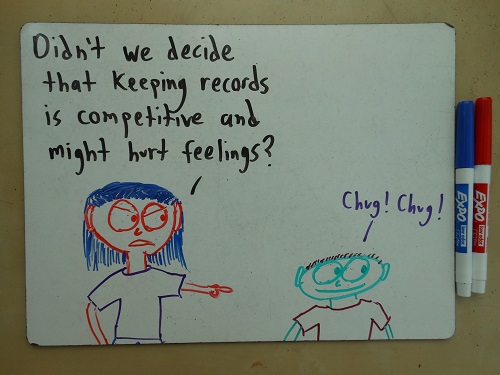 Didn't we decide
that Keeping records
is competitive and
might hurt feelings?
Chug! Chug!
EXPO
EXPO